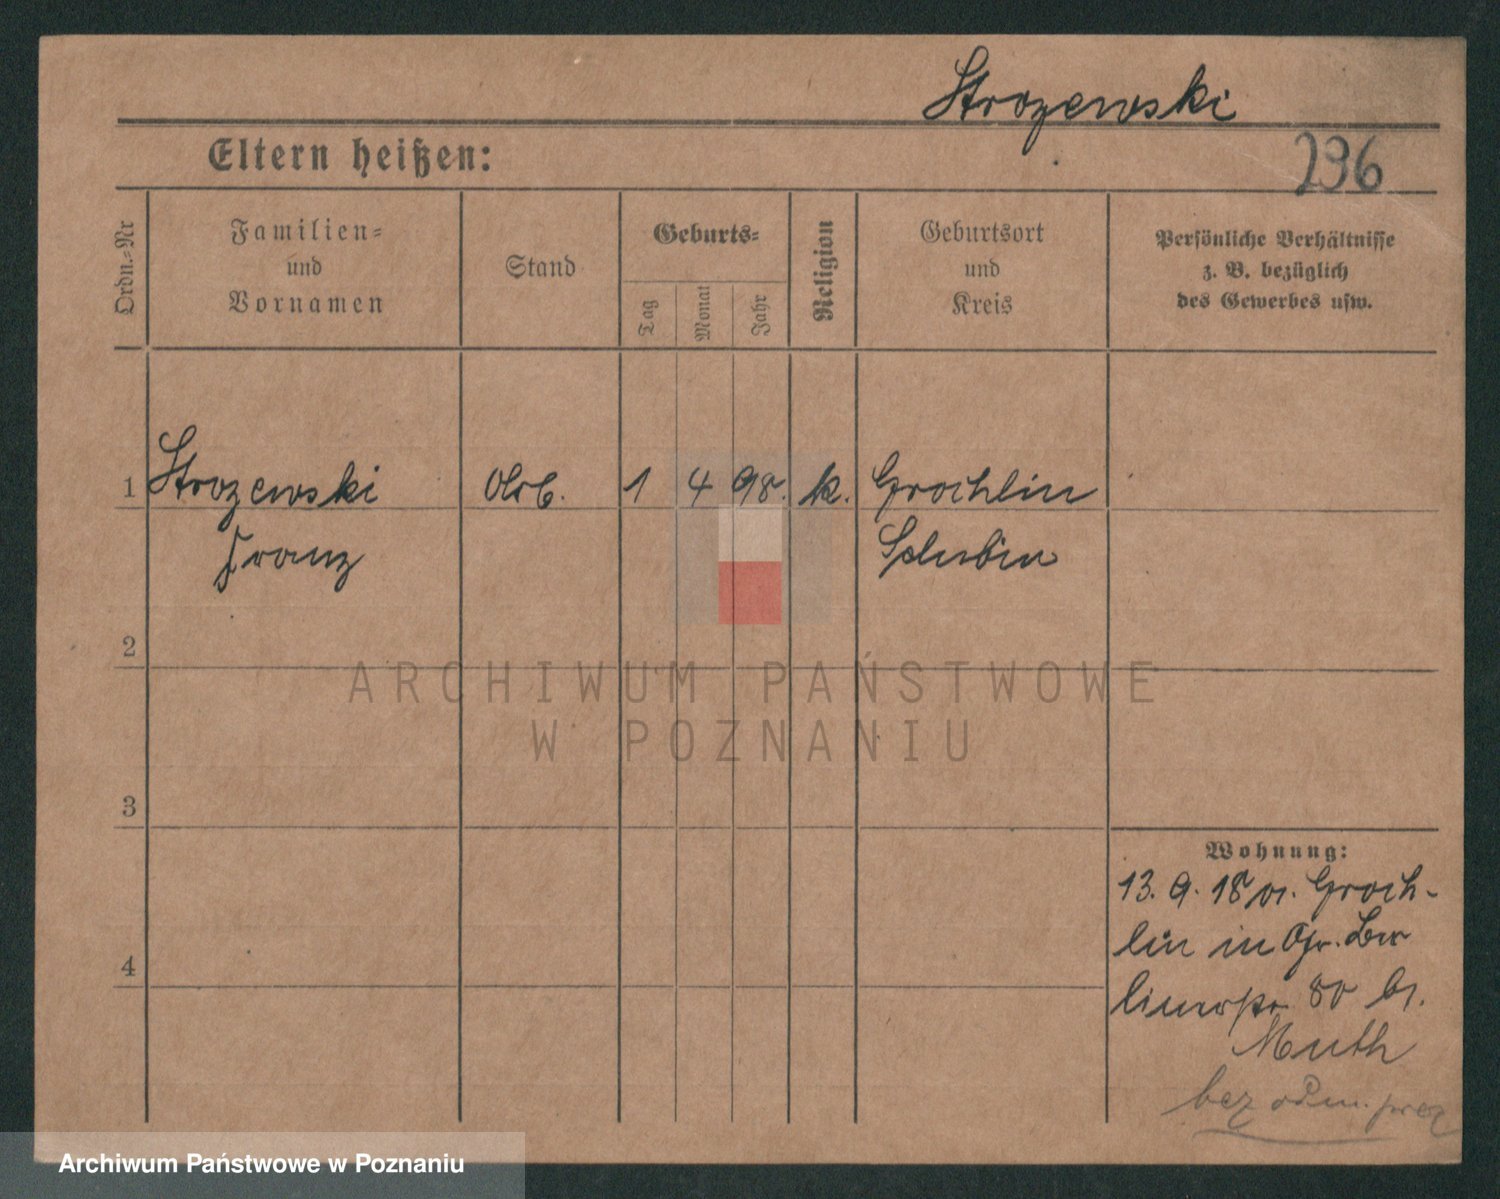 Strozewski
Eltern heißen:
296
Ordn.-Nr
Familien-
und
Vornamen
Stand
Geburts-
Tag
Monat
Jahr
Religion
Geburtsort
und
Kreis
Persönliche Verhältnisse
z. B. bezüglich
des Gewerbes usw.
1 Strozewski Arb. 1 4 98. k. Grochlin
Franz Schubin
2
3
4
Wohnung:
13. 9. 18 v. Groch-
lin in Gr. Ber
linerstr 80 b.
Muth
bez odm.
ARCHIWUM PAŃSTWOWE
W POZNANIU
Archiwum Państwowe w Poznaniu